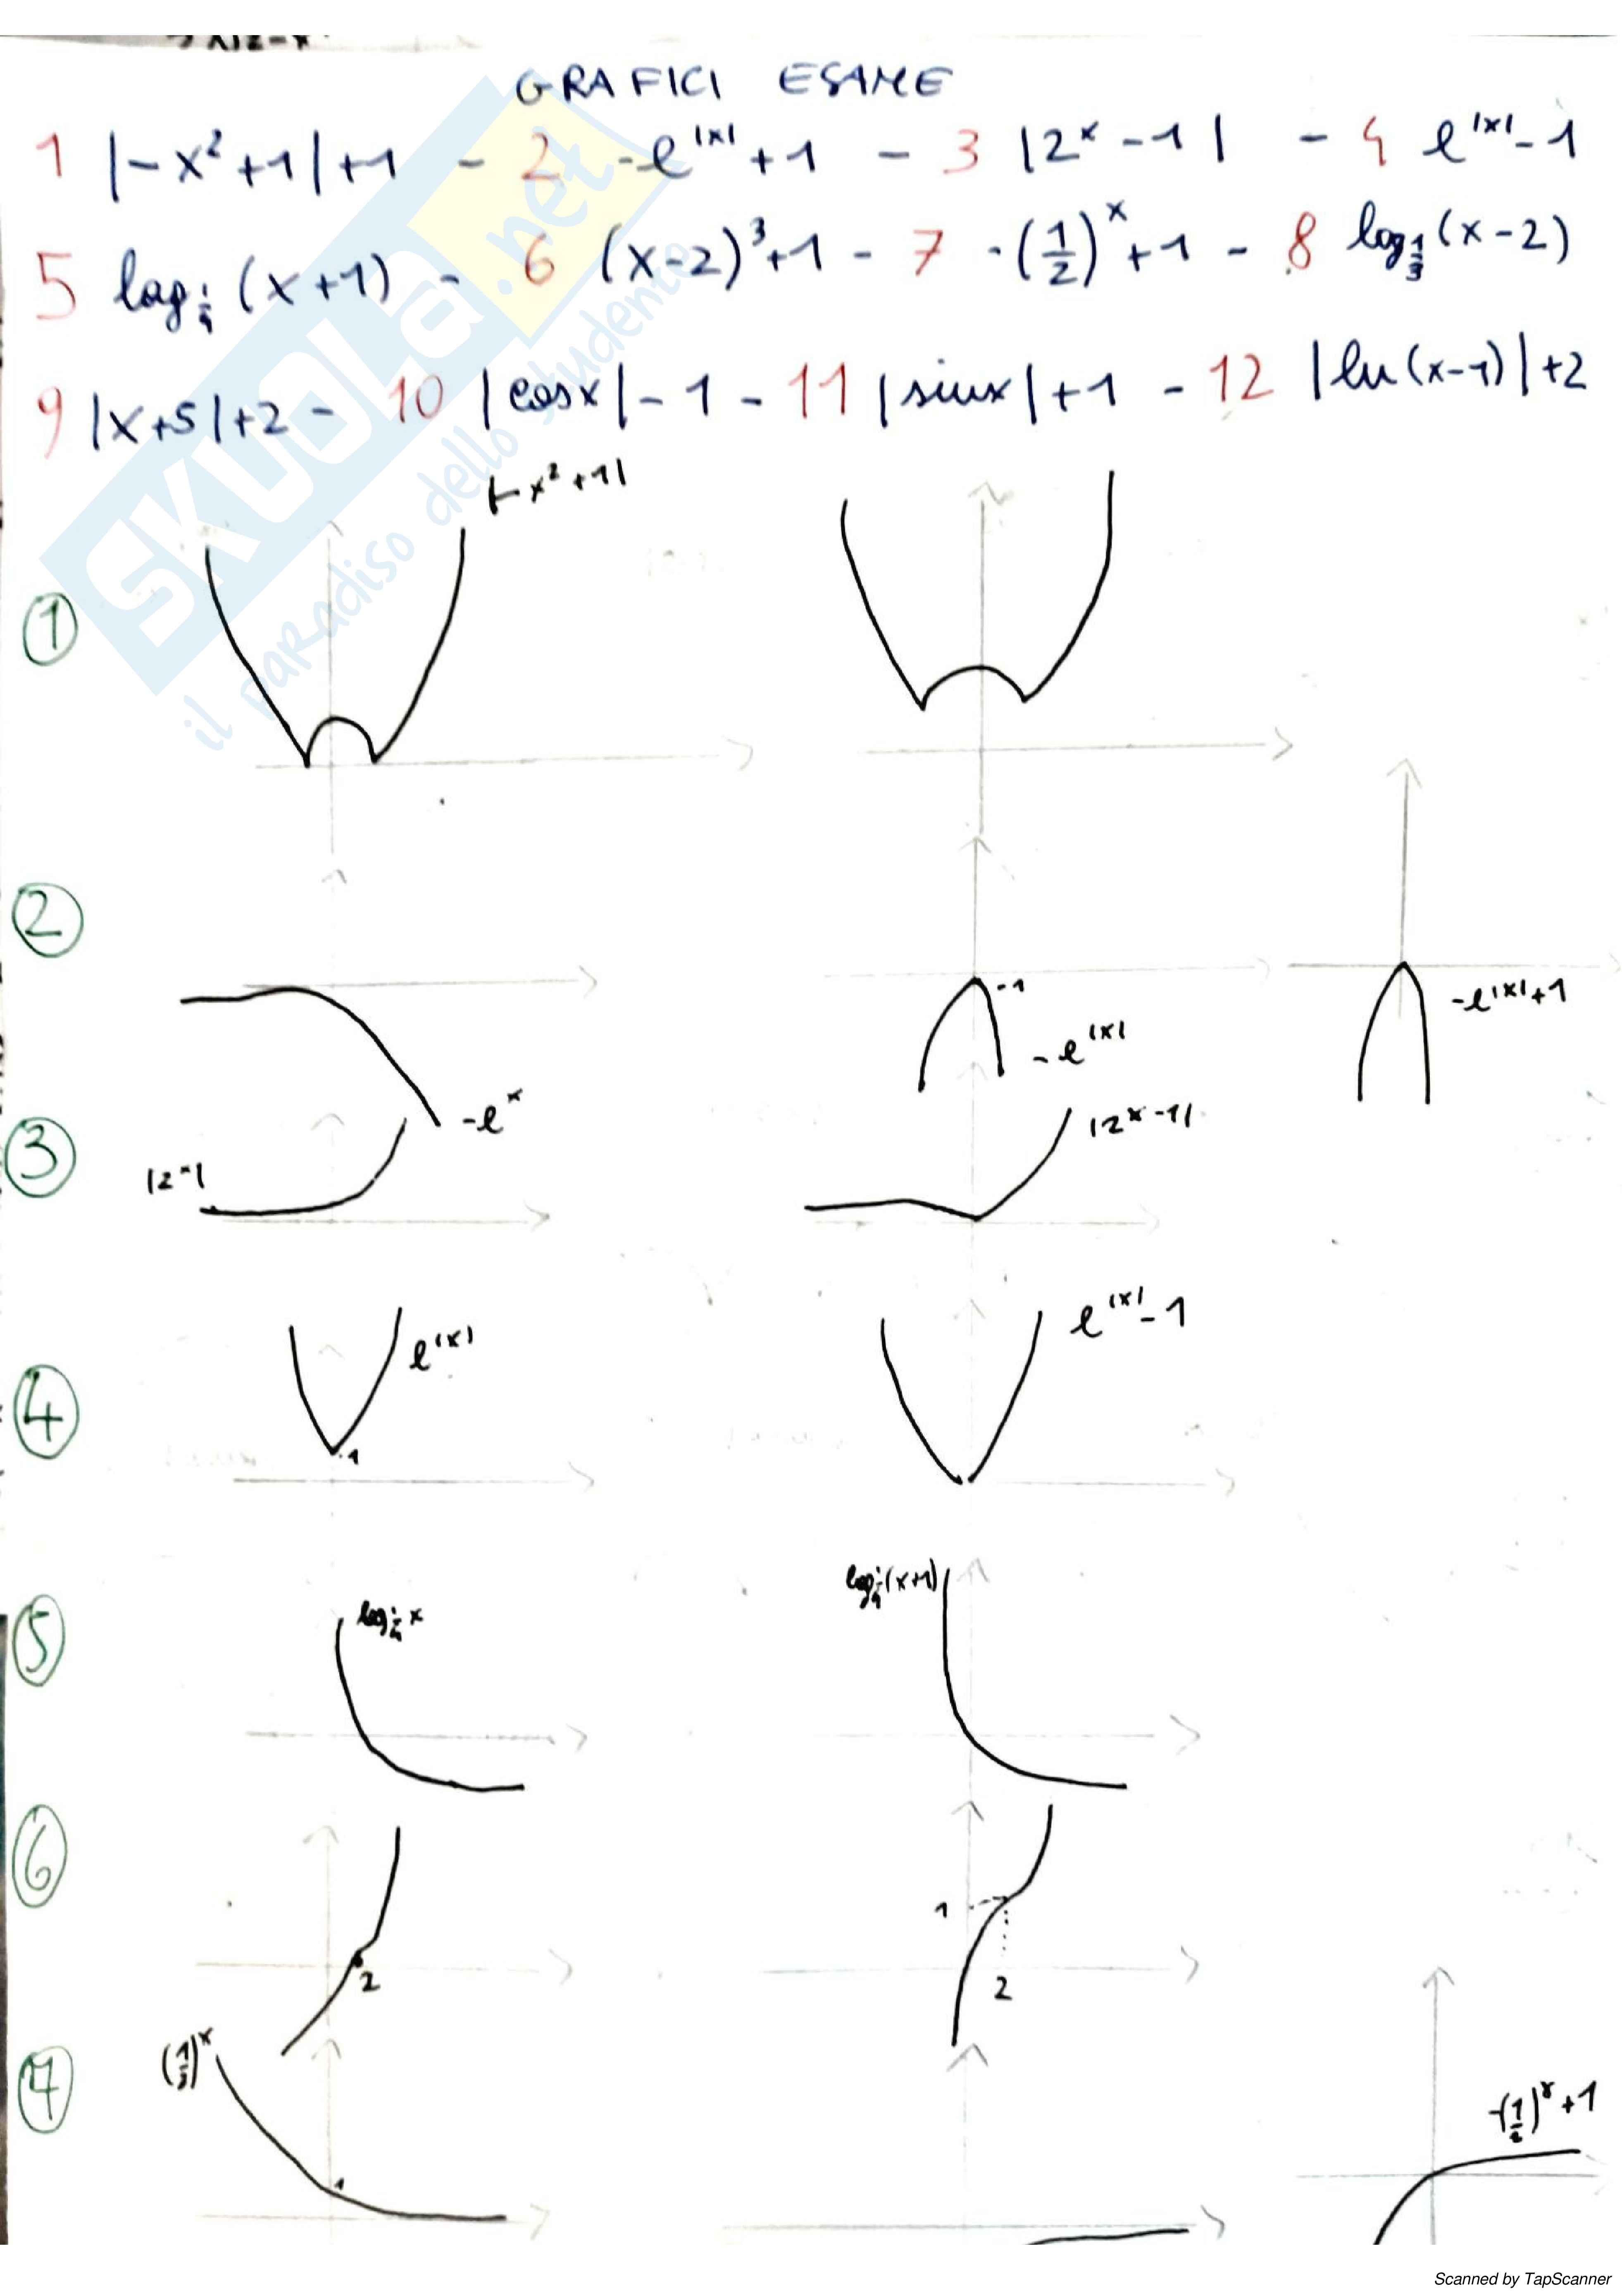 GRAFICI ESAME
1 |-x²+1|+1 - 2 -e^|x|+1 - 3 |2^x-1| - 4 e^|x|-1
5 log_{1/4}(x+1) - 6 (x-2)³+1 - 7 -(1/2)^x+1 - 8 log_{1/3}(x-2)
9 |x+5|+2 - 10 |cosx|-1 - 11 |sinx|+1 - 12 |ln(x-1)|+2
SKUOLA.net
il paradiso dello studente
|-x²+1|
1
2
-1
-e^|x|+1
-e^|x|
-e^x
3
|2^x|
|2^x-1|
4
e^|x|
1
e^|x|-1
5
log_{1/4}x
log_{1/4}(x+1)
6
2
1
2
7
1
-(1/2)^x+1
Scanned by TapScanner